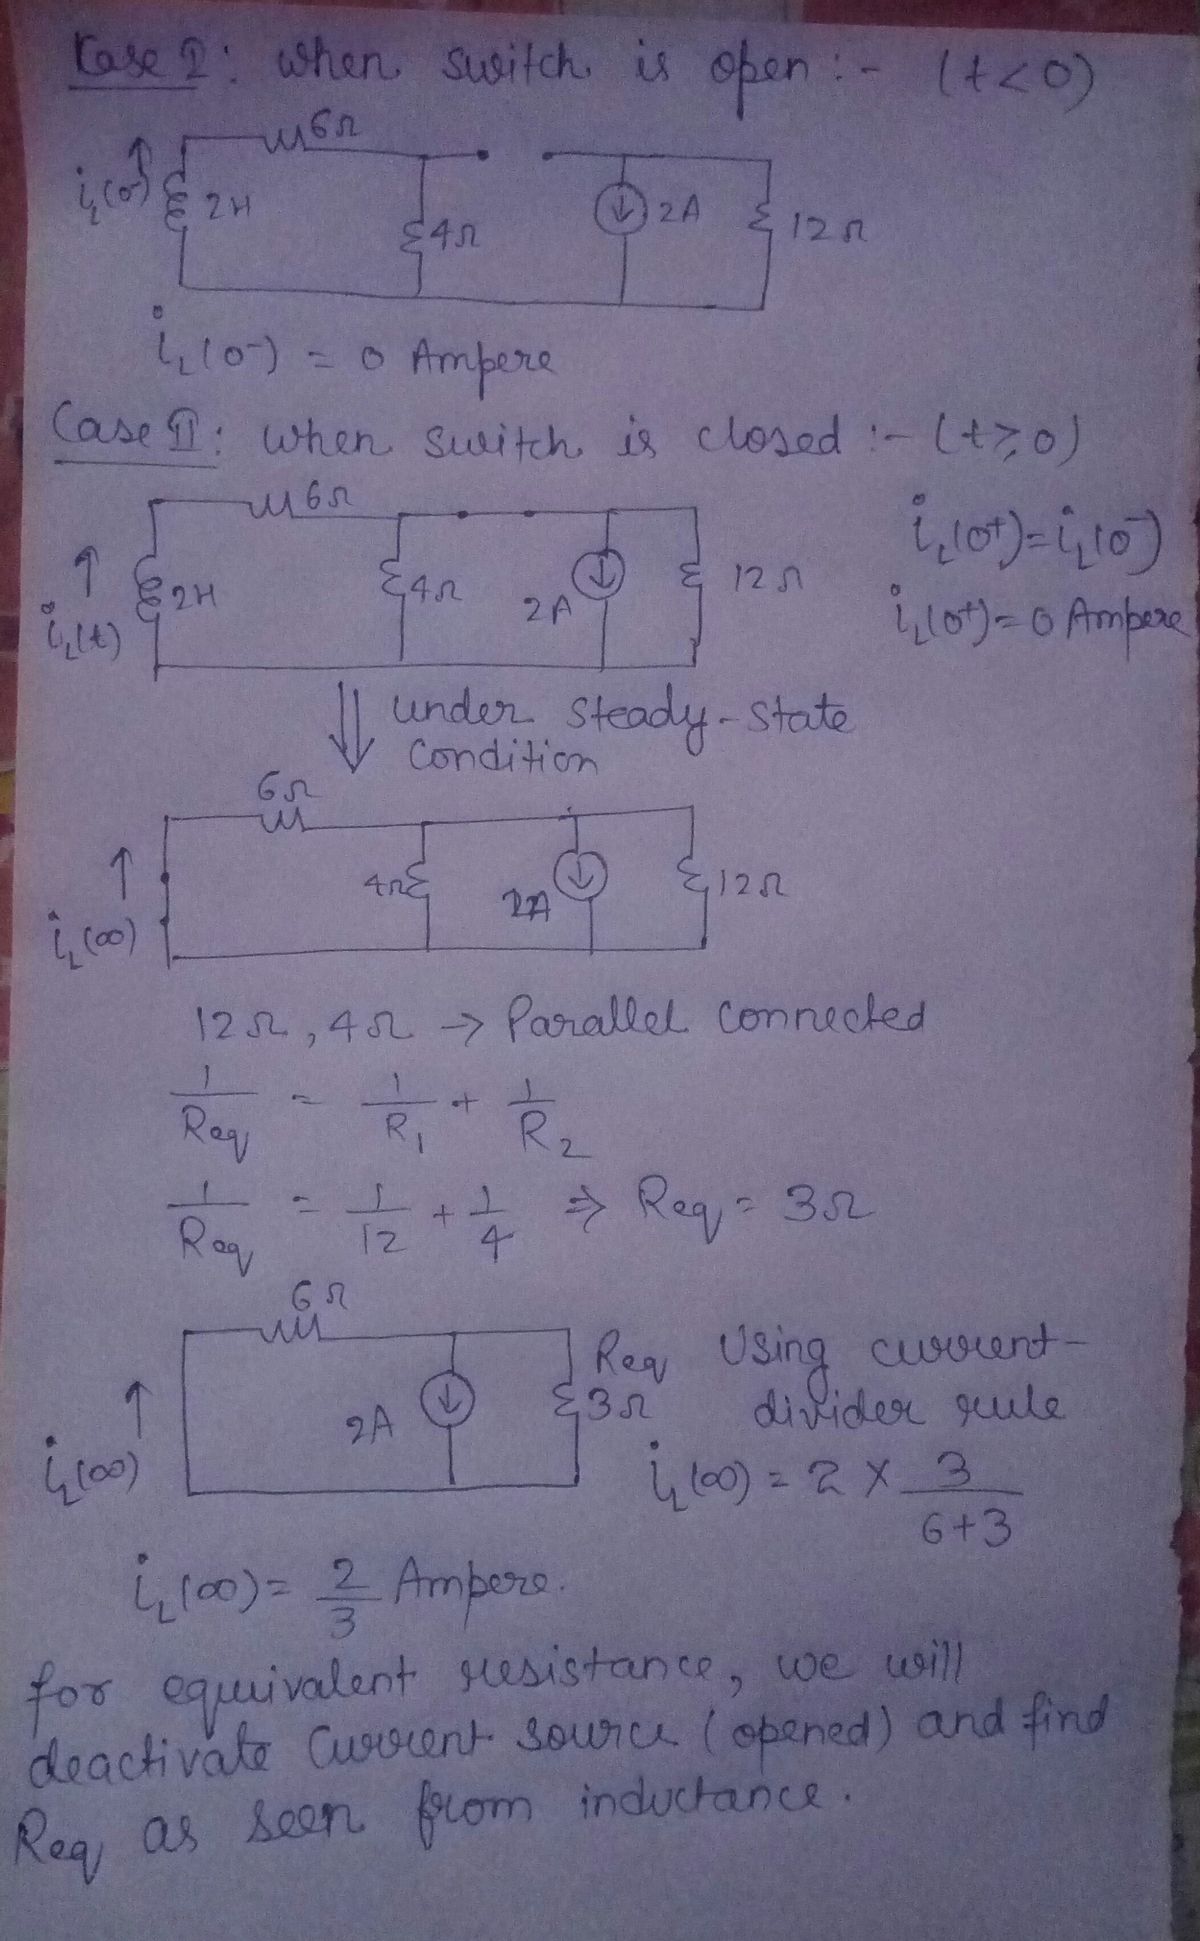 Case I: when switch is open :- (t<0)
6Ω
iL(0-) 2H 4Ω 2A 12Ω
iL(0-) = 0 Ampere
Case II: when switch is closed :- (t≥0)
6Ω
iL(0+)=iL(0-)
iL(t) 2H 4Ω 2A 12Ω
iL(0+)=0 Ampere
⇓ under steady-state
condition
6Ω
iL(∞) 4Ω 2A 12Ω
12Ω, 4Ω → Parallel connected
1/Req = 1/R1 + 1/R2
1/Req = 1/12 + 1/4 ⇒ Req = 3Ω
6Ω
iL(∞) 2A Req 3Ω
Using current-
divider rule
iL(∞) = 2 × 3/(6+3)
iL(∞) = 2/3 Ampere.
for equivalent resistance, we will
deactivate current source (opened) and find
Req as seen from inductance.